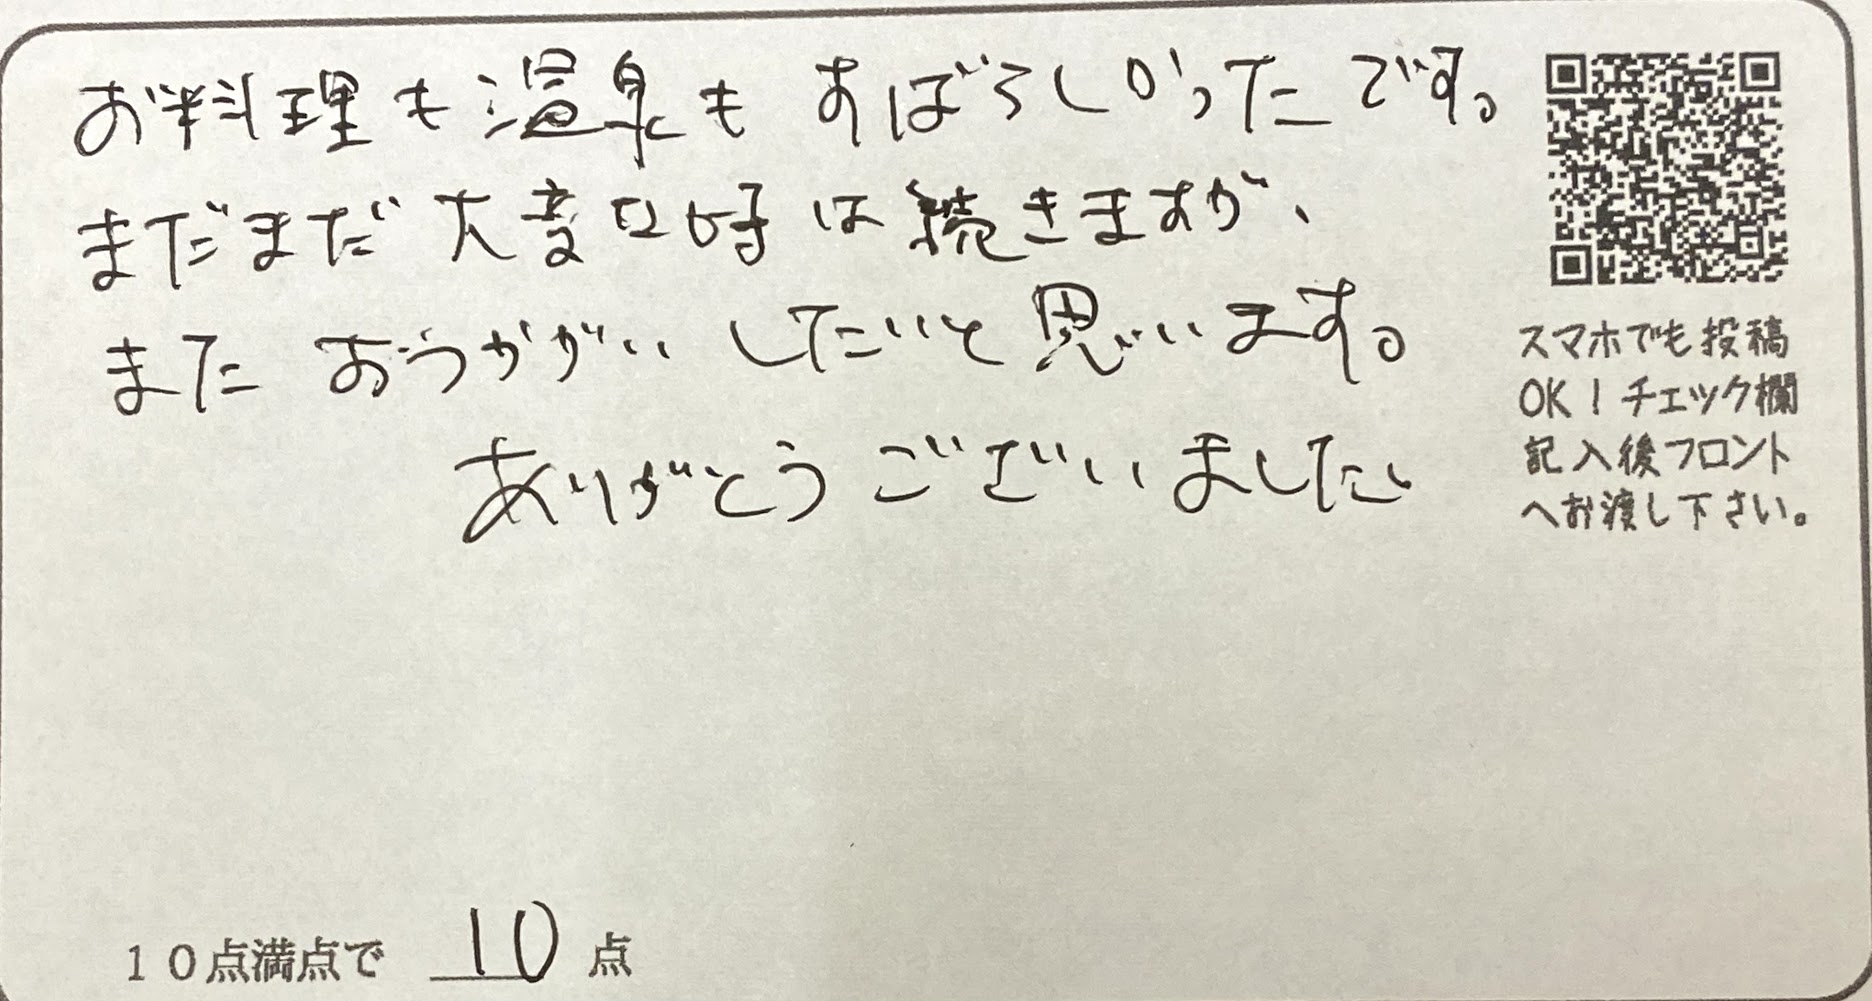 お料理も温泉もすばらしかったです。
まだまだ大変な時は続きますが、
またおうかがいしたいと思います。
ありがとうございました。
スマホでも投稿
OK！チェック欄
記入後フロント
へお渡し下さい。
10点満点で 10 点